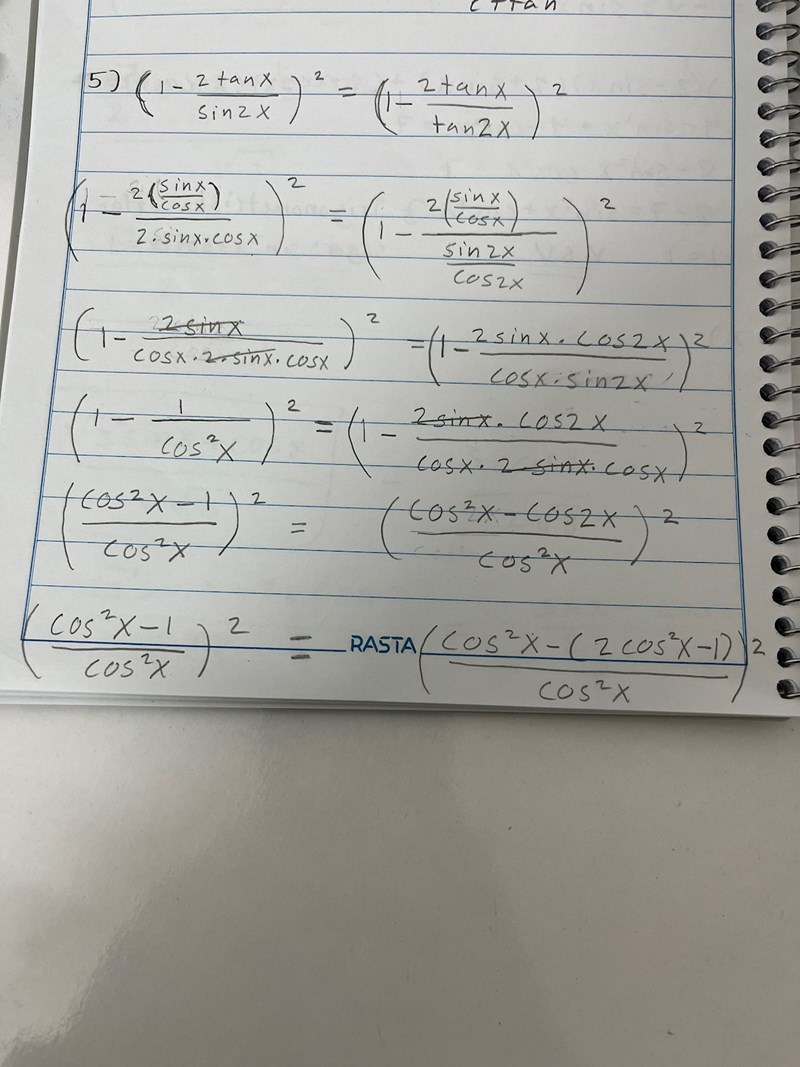 5) (1 - 2 tanx / sin2x)² = (1 - 2 tanx / tan2x)²
(1 - 2(sinx/cosx) / 2·sinx·cosx)² = (1 - 2(sinx/cosx) / (sin2x/cos2x))²
(1 - 2 sinx / cosx·2·sinx·cosx)² = (1 - 2 sinx·cos2x / cosx·sin2x)²
(1 - 1 / cos²x)² = (1 - 2 sinx·cos2x / cosx·2 sinx·cosx)²
(cos²x - 1 / cos²x)² = (cos²x - cos2x / cos²x)²
(cos²x - 1 / cos²x)² = RASTA (cos²x - (2 cos²x - 1) / cos²x)²